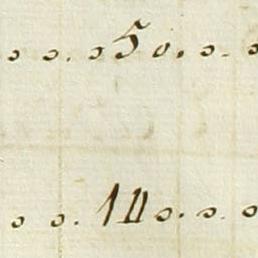 o o. o 5 o. o. o
o o. 1 11 o. o. o